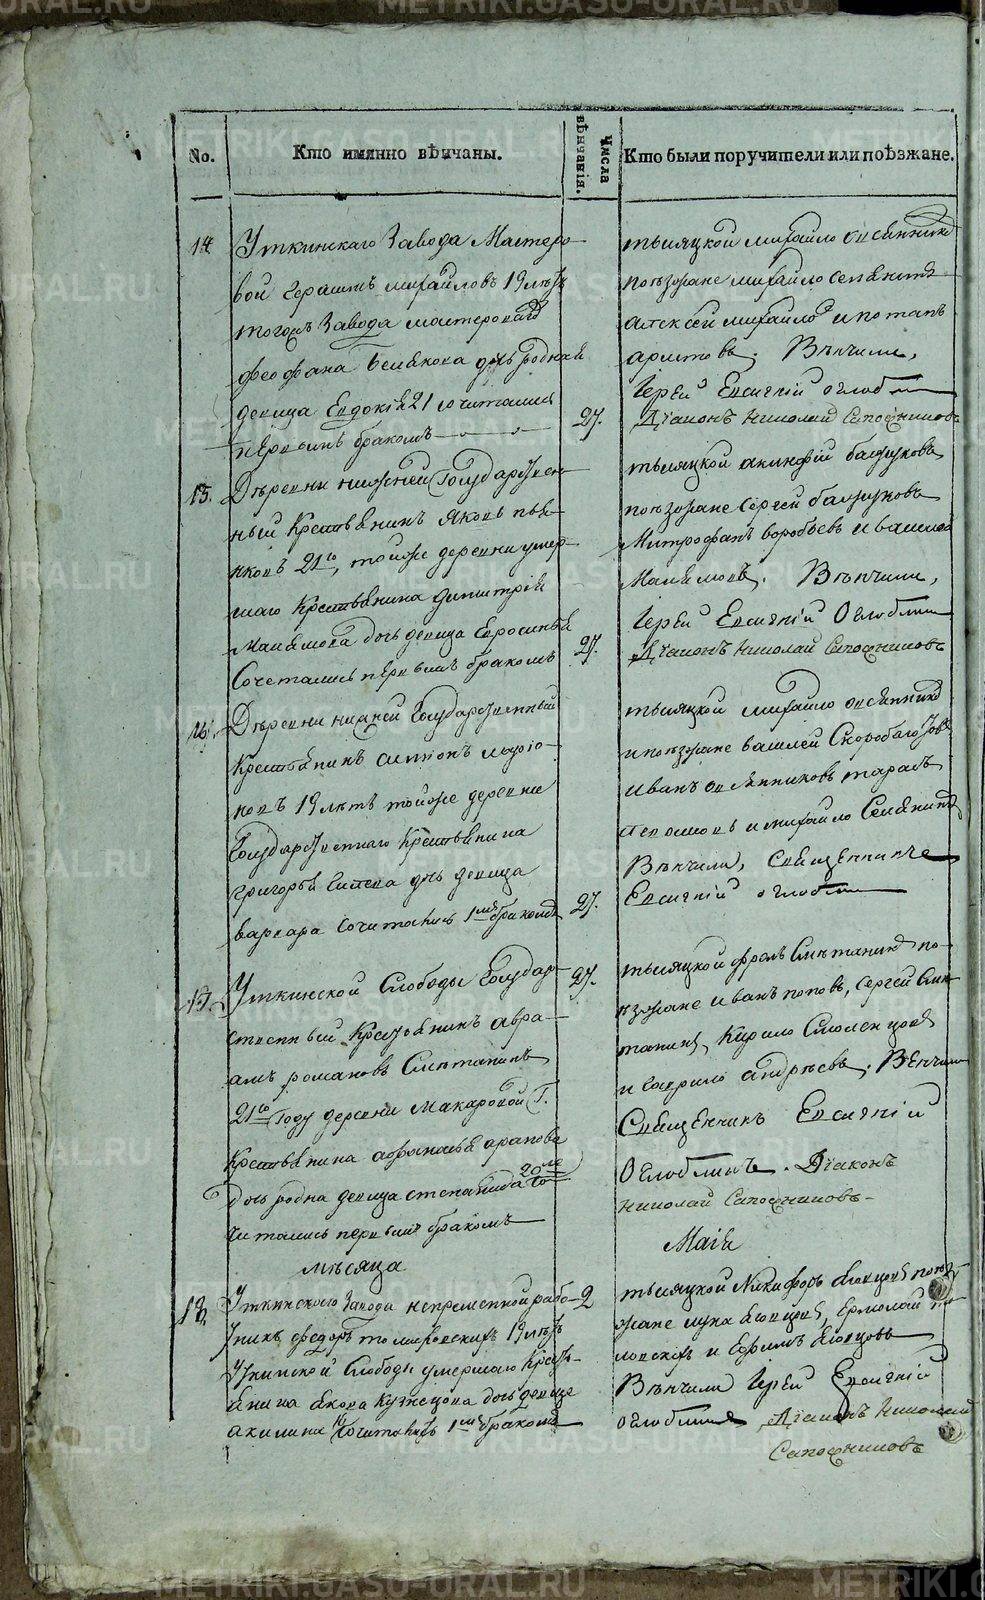 No.
Кто имянно вѣнчаны.
Числа вѣнчанія.
Кто были поручители или поѣзжане.
14
Уткинскаго Завода Мастеро-
вой Герасимъ михайловъ 19 лѣтъ
тогожъ Завода мастероваго
феофана белякова дочь родная
девица Евдокія 21 сочитались
первымъ бракомъ
27.
тысяцкой михайло овсянник
поезжане михайло семянинъ
алексей михайло и потапъ
аристовъ. Вѣнчали,
Іерей Евсигній оглобл
Діаконъ Николай Сапожниковъ
15.
Дѣревни нижней Государствен-
ный Крестьянинъ яковъ пья-
нковъ 21го, тойже деревни умер-
шаго Крестьянина димитрія
мамямова дочь девица Евросинья
Сочетались первымъ бракомъ
27.
тысяцкой акинфій балчуковъ
поезжане Сергей балчуковъ
Митрофанъ воробьевъ и василей
Мамямовъ. Вѣнчали,
Іерей Евсигній Оглоблин
Діаконъ Николай Сапожниковъ
16.
Дѣревни нижней Государственный
Крестьянинъ симионъ
новъ 19 лѣтъ тойже деревни
Государственнаго Крестьянина
григорья дочь девица
варвара Сочитались 1мъ бракомъ
27.
тысяцкой михайло овсянник
и поезжане василей Скоробогатов
иванъ овсянниковъ тарасъ
и михайло Семянинъ
Вѣнчали, Священникъ
Евсигній оглобл
17.
Уткинской Слободы Государ-
ственный Крестьянинъ авра-
амъ романовъ Смѣтанинъ
21го Году деревни Макаровой Г.
Крестьянина афонасья арапова
дочь родна девица степанида 20 ле со-
читались первымъ бракомъ
27.
тысяцкой фролъ Смѣтанинъ по-
езжане иванъ поповъ, Сергей Смѣ-
танинъ, Кирило Смоленцовъ
и Гаврило андрѣевъ. Вѣнчали
Священникъ Евсигній
Оглоблинъ. Діаконъ
Николай Сапожниковъ
мѣсяца
Маія
18.
Уткинскаго Завода непременной рабо-
тникъ федоръ томиловскихъ 19 лѣтъ
Уткинской Слободы умершаго Кресть-
янина якова Кузнецова дочь девица
акилина Сочитались 1мъ бракомъ
2
тысяцкой Никифоръ поез-
жане лука Ермолай то-
миловскихъ и Ефимъ
Вѣнчали Іерей Евсигній
оглоблинъ Діаконъ Николай
Сапожниковъ